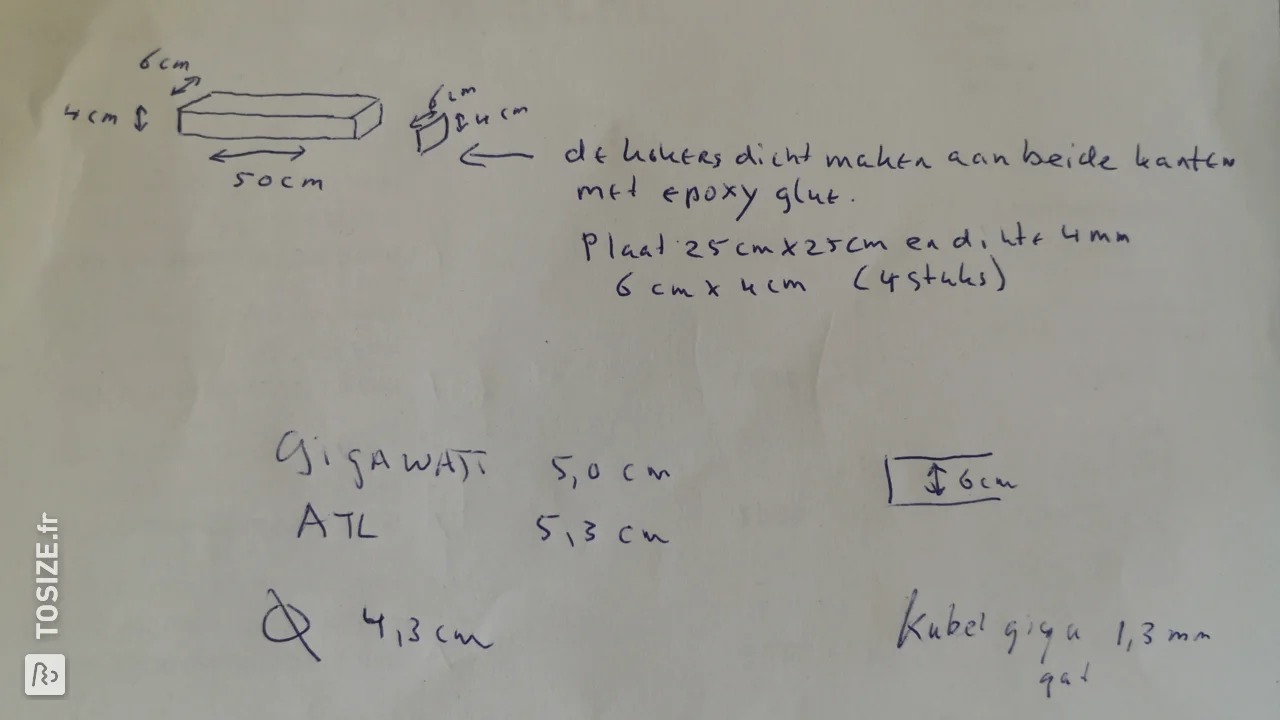 6cm
4cm
50cm
6cm
4cm
de kokers dicht maken aan beide kanten
met epoxy glue.
Plaat 25cm x 25cm en dikte 4mm
6 cm x 4cm (4 stuks)
GIGAWATT 5,0 cm
6cm
ATL 5,3 cm
Ø 4,3 cm
Kabel giga 1,3 mm
gat
TOSIZE.fr